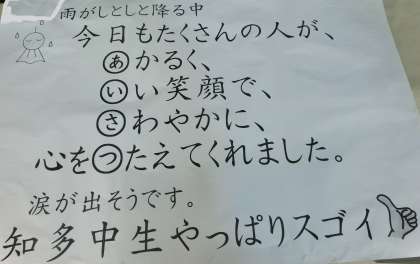 雨がしとしと降る中
今日もたくさんの人が、
あかるく、
いい笑顔で、
さわやかに、
心をつたえてくれました。
涙が出そうです。
知多中生やっぱりスゴイ